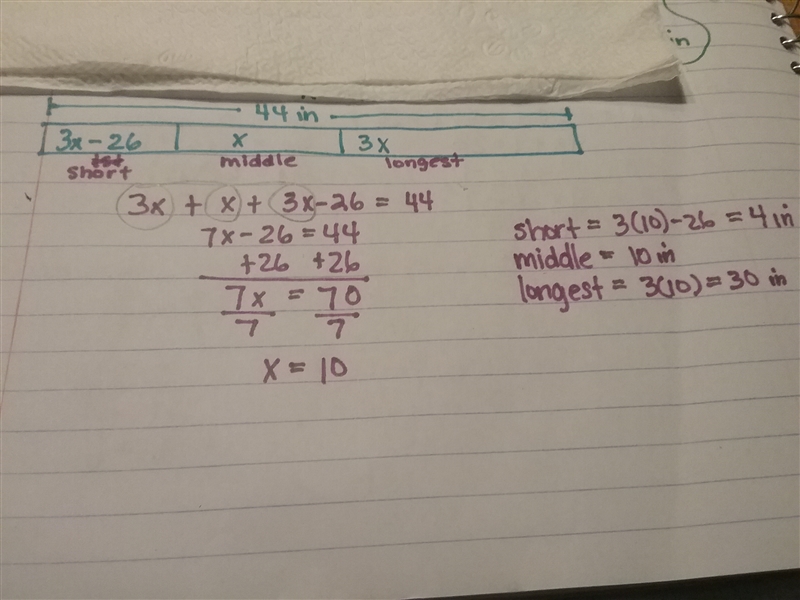 in
44 in
3x - 26 x 3x
short middle longest
3x + x + 3x - 26 = 44
7x - 26 = 44
+26 +26
7x = 70
7 7
x = 10
short = 3(10) - 26 = 4 in
middle = 10 in
longest = 3(10) = 30 in